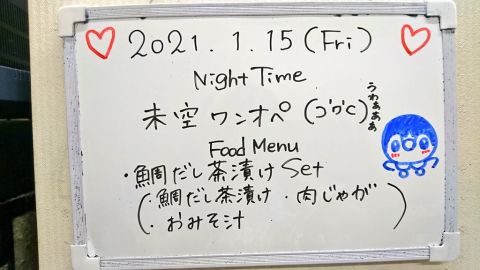 2021.1.15(Fri)
Night Time
未空ワンオペ(ゴクc)
うわぁぁぁ
Food Menu
・鯛だし茶漬けSet
(・鯛だし茶漬け・肉じゃが
・おみそ汁)